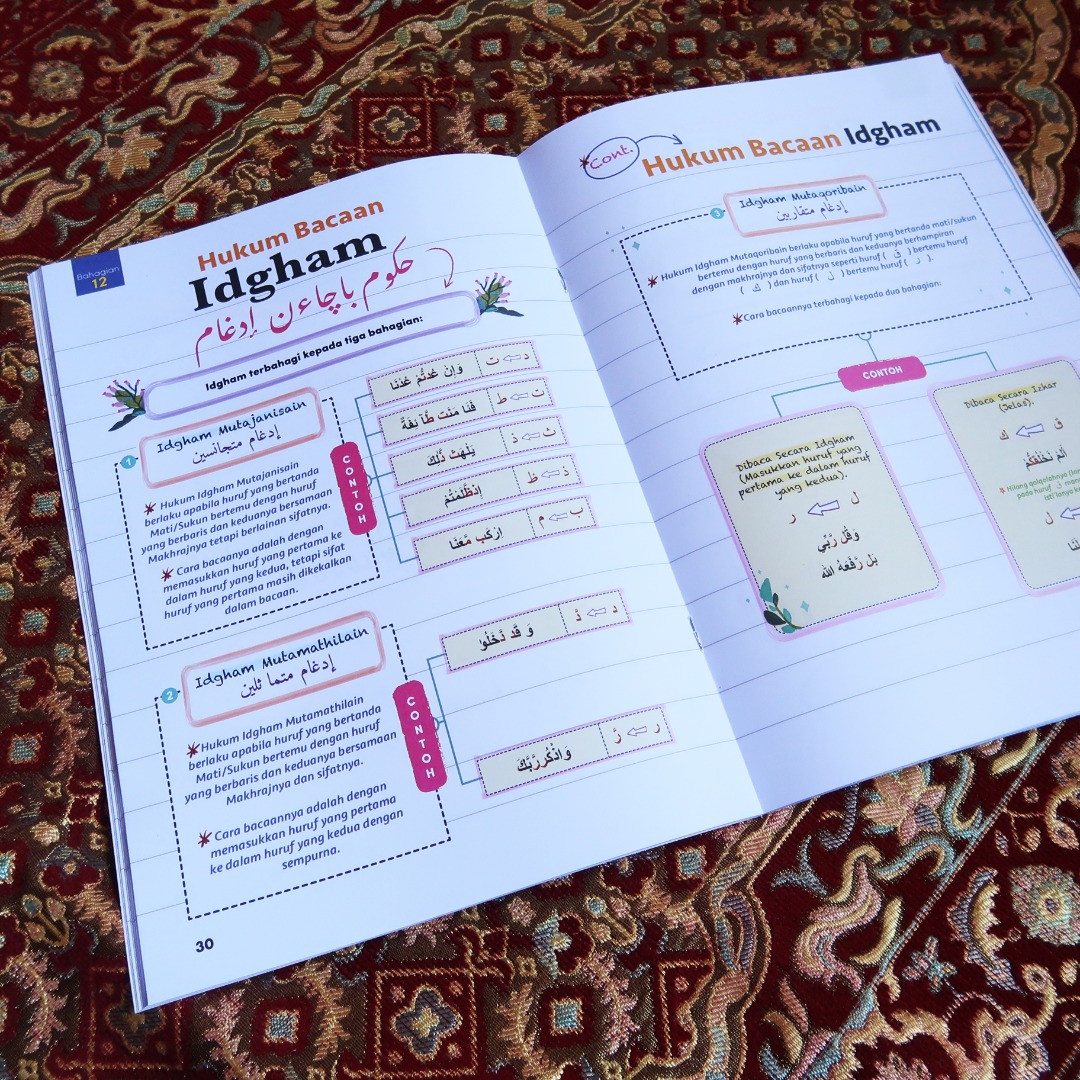 Bahagian
12
Hukum Bacaan
Idgham
حكوم باچاءن إدغام
Idgham terbahagi kepada tiga bahagian:
1
Idgham Mutajanisain
إدغام متجانسين
Hukum Idgham Mutajanisain
berlaku apabila huruf yang bertanda
Mati/Sukun bertemu dengan huruf
yang berbaris dan keduanya bersamaan
Makhrajnya tetapi berlainan sifatnya.
Cara bacaanya adalah dengan
memasukkan huruf yang pertama ke
dalam huruf yang kedua, tetapi sifat
huruf yang pertama masih dikekalkan
dalam bacaan.
CONTOH
د ⇦ ت
وَإِنْ عُدتُّمْ عُدْنَا
ت ⇦ ط
ث ⇦ ذ
يَلْهَث ذَّلِكَ
ذ ⇦ ظ
إِذظَّلَمْتُمْ
ب ⇦ م
ارْكَب مَّعَنَا
2
Idgham Mutamathilain
إدغام متما ثلين
Hukum Idgham Mutamathilain
berlaku apabila huruf yang bertanda
Mati/Sukun bertemu dengan huruf
yang berbaris dan keduanya bersamaan
Makhrajnya dan sifatnya.
Cara bacaannya adalah dengan
memasukkan huruf yang pertama
ke dalam huruf yang kedua dengan
sempurna.
CONTOH
وَ قَد دَّخَلُوا
وَاذْكُررَّبَّكَ
30
Cont.
Hukum Bacaan Idgham
3
Idgham Mutaqoribain
إدغام متقاربين
Hukum Idgham Mutaqoribain berlaku apabila huruf yang bertanda mati/sukun
bertemu dengan huruf yang berbaris dan keduanya berhampiran
dengan makhrajnya dan sifatnya seperti huruf ( ق ) bertemu huruf
( ك ) dan huruf ( ل ) bertemu huruf ( ر ).
Cara bacaannya terbahagi kepada dua bahagian:
CONTOH
Dibaca Secara Idgham
(Masukkan huruf yang
pertama ke dalam huruf
yang kedua).
ل ⇦ ر
وَقُل رَّبِّي
بَل رَّفَعَهُ الله
Dibaca Secara Izhar
(Jelas).
ق ⇦ ك
أَلَمْ نَخْلُقكُّم
Hilang qalqalahnya
pada huruf
ل